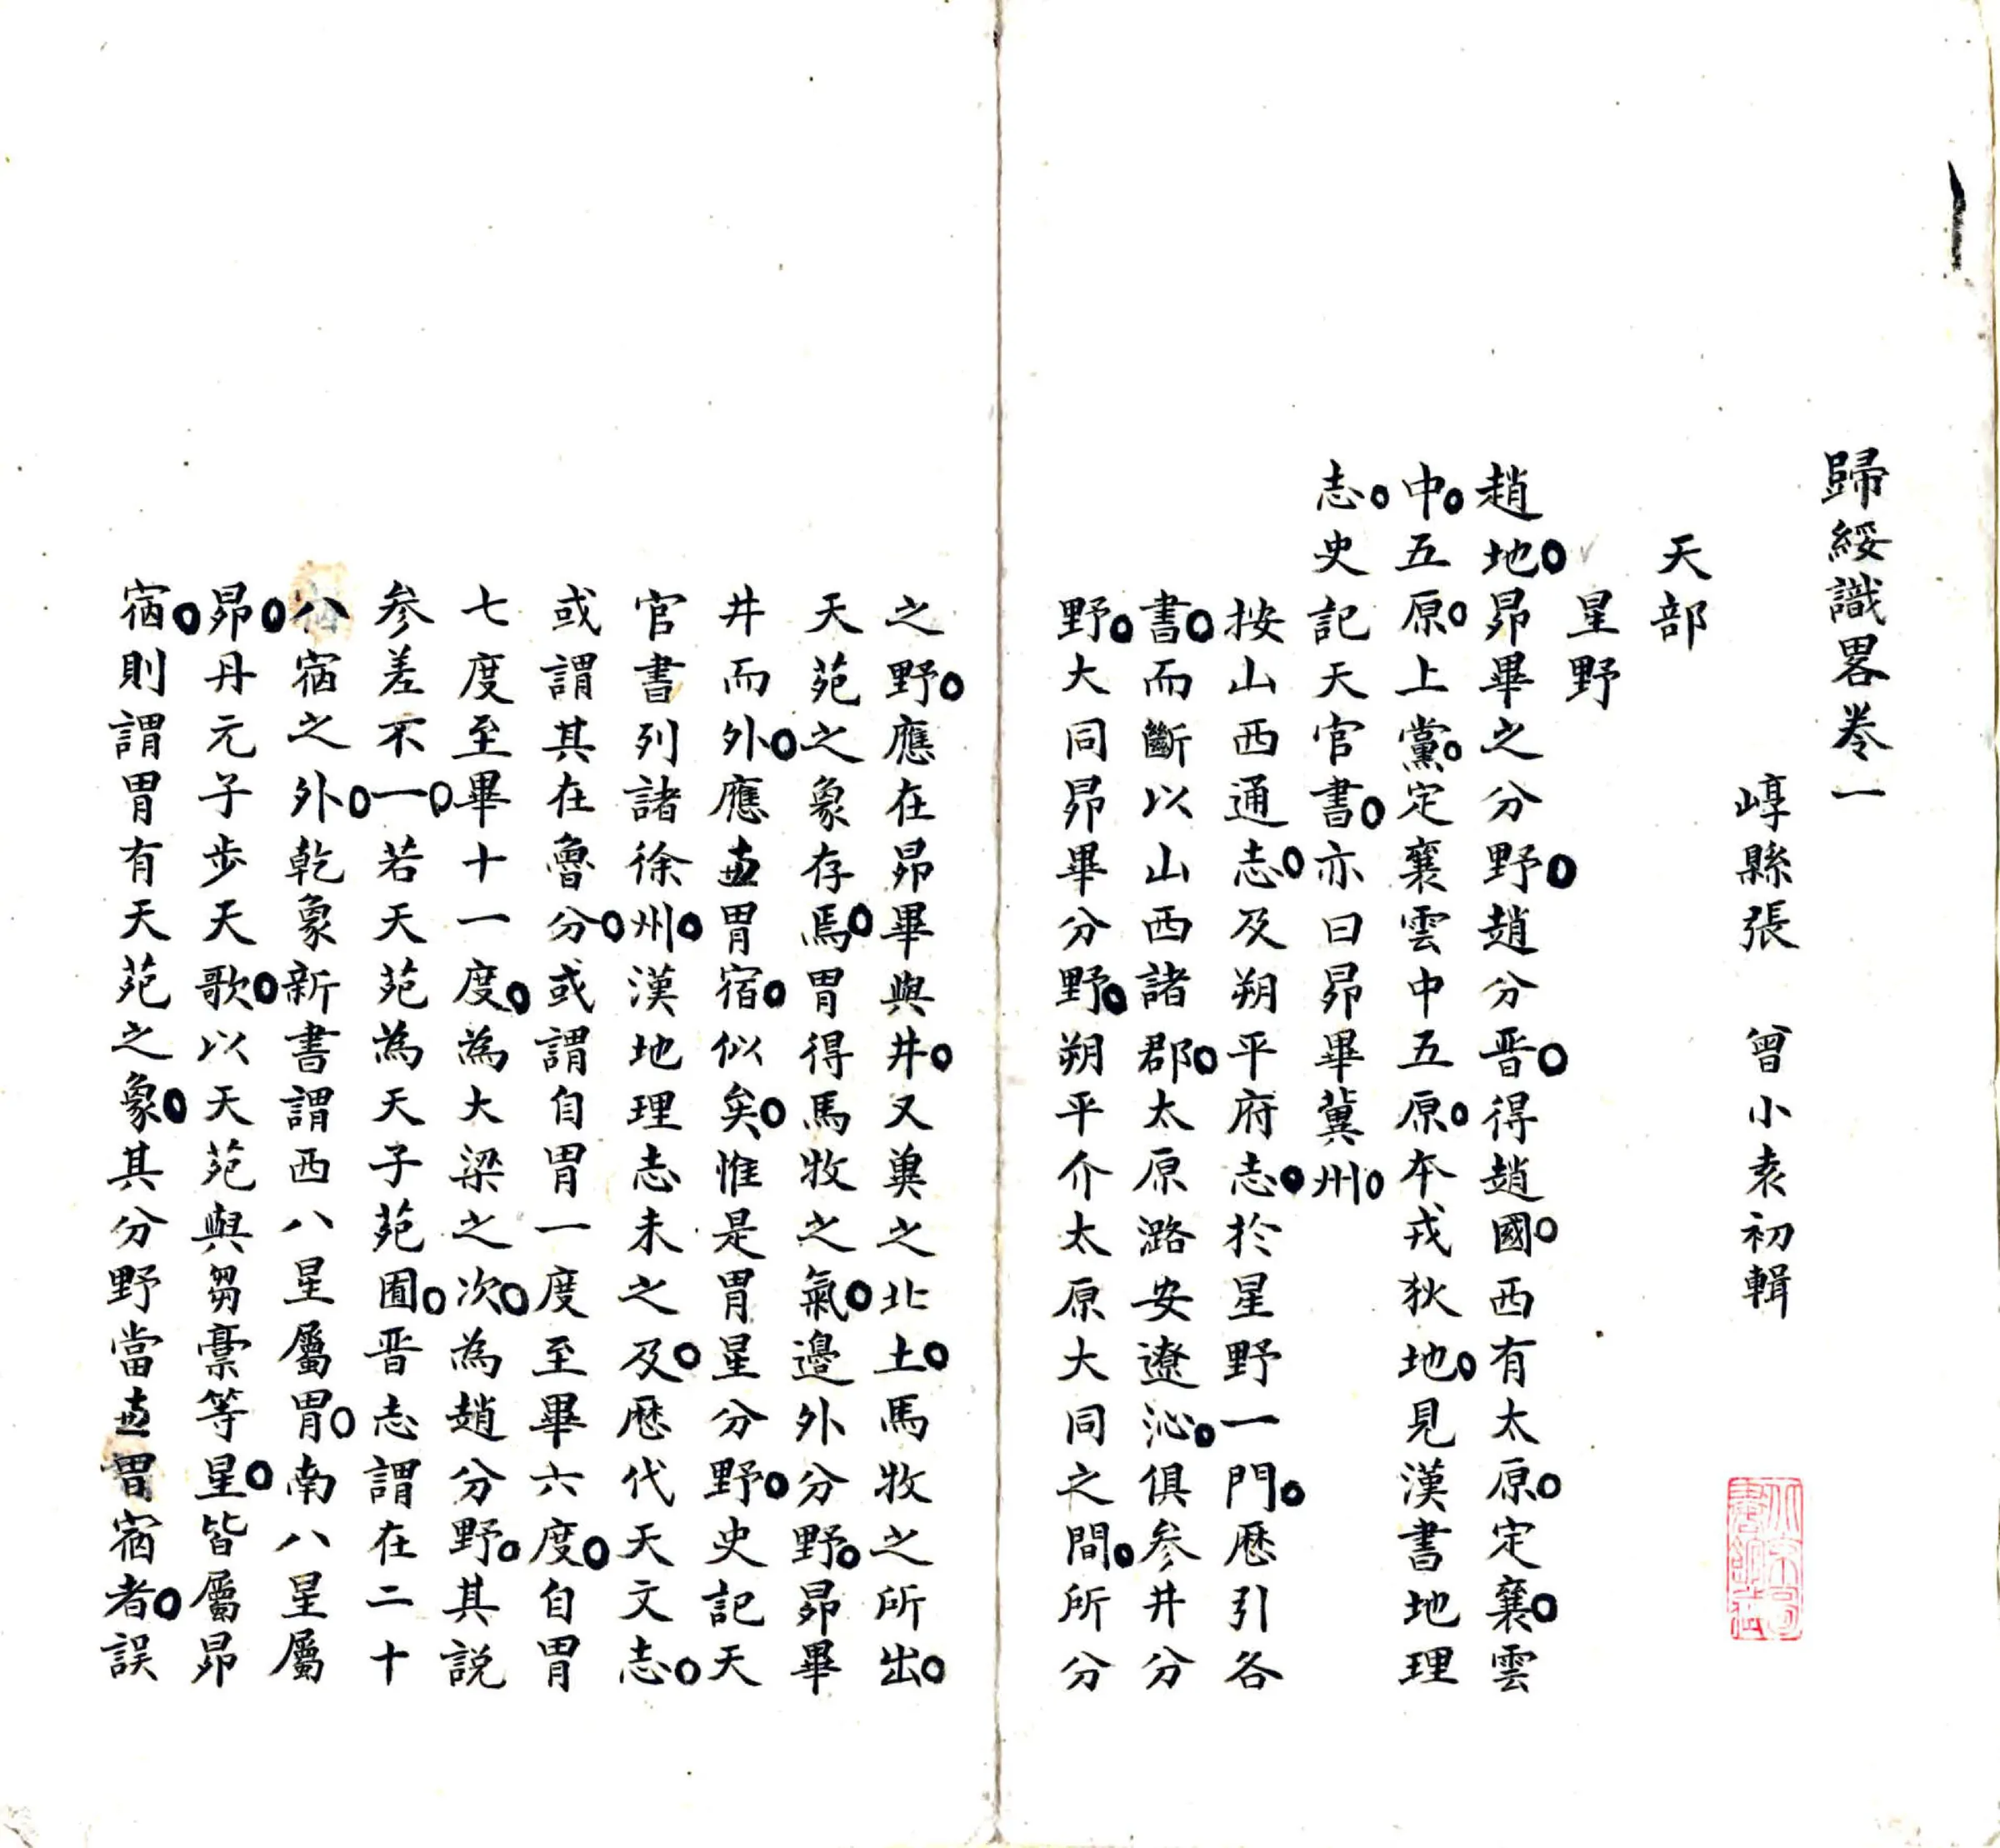 歸綏識畧卷一
崞縣張　曾小袁初輯
天部
星野
趙地昴畢之分野趙分晋得趙國西有太原定襄雲
中五原上黨定襄雲中五原本戎狄地見漢書地理
志史記天官書亦曰昴畢冀州
按山西通志及朔平府志於星野一門歷引各
書而斷以山西諸郡太原潞安遼沁俱参井分
野大同昴畢分野朔平介太原大同之間所分
之野應在昴畢與井又冀之北土馬牧之所出
天苑之象存焉胃得馬牧之氣邊外分野昴畢
井而外應直胃宿似矣惟是胃星分野史記天
官書列諸徐州漢地理志未之及歷代天文志
或謂其在魯分或謂自胃一度至畢六度自胃
七度至畢十一度為大梁之次為趙分野其說
参差不一若天苑為天子苑囿晋志謂在二十
八宿之外乾象新書謂西八星屬胃南八星屬
昴丹元子步天歌以天苑與芻藁等星皆屬昴
宿則謂胃有天苑之象其分野當直胃宿者誤